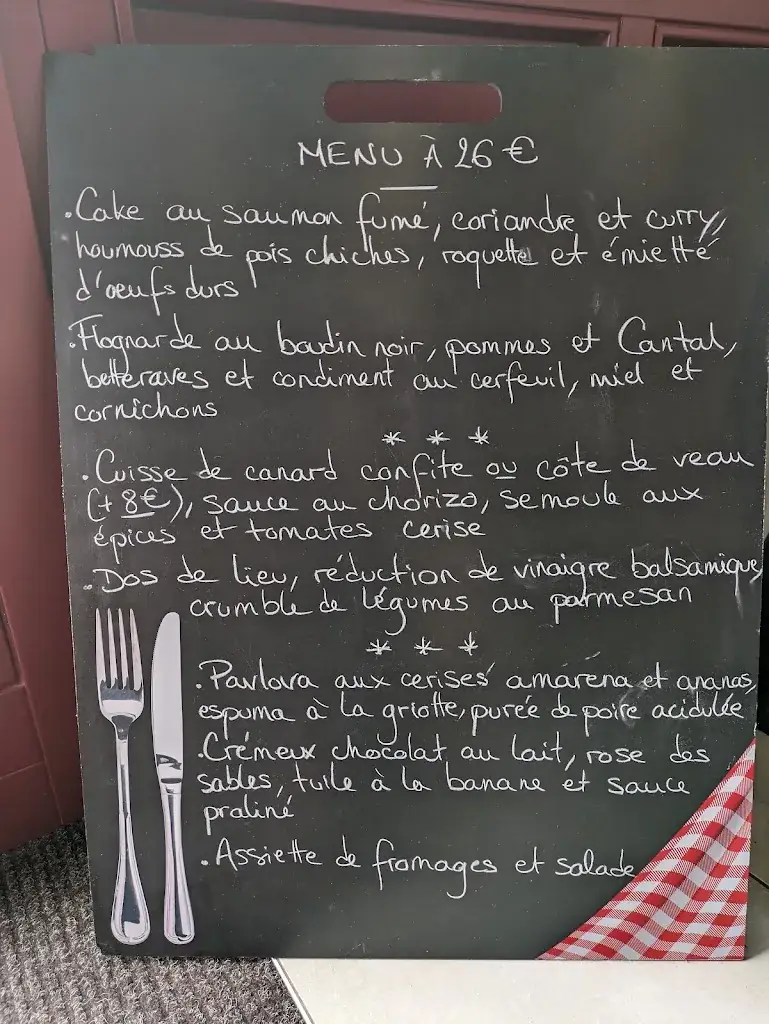 MENU À 26 €
• Cake au saumon fumé, coriandre et curry,
houmouss de pois chiches, roquette et émietté
d'oeufs durs
• Flognarde au boudin noir, pommes et Cantal,
betteraves et condiment au cerfeuil, miel et
cornichons
* * *
• Cuisse de canard confite ou côte de veau
(+ 8€), sauce au chorizo, semoule aux
épices et tomates cerise
• Dos de lieu, réduction de vinaigre balsamique,
crumble de légumes au parmesan
* * *
• Pavlova aux cerises amarena et ananas,
espuma à la griotte, purée de poire acidulée
• Crémeux chocolat au lait, rose des
sables, tuile à la banane et sauce
praliné
• Assiette de fromages et salade